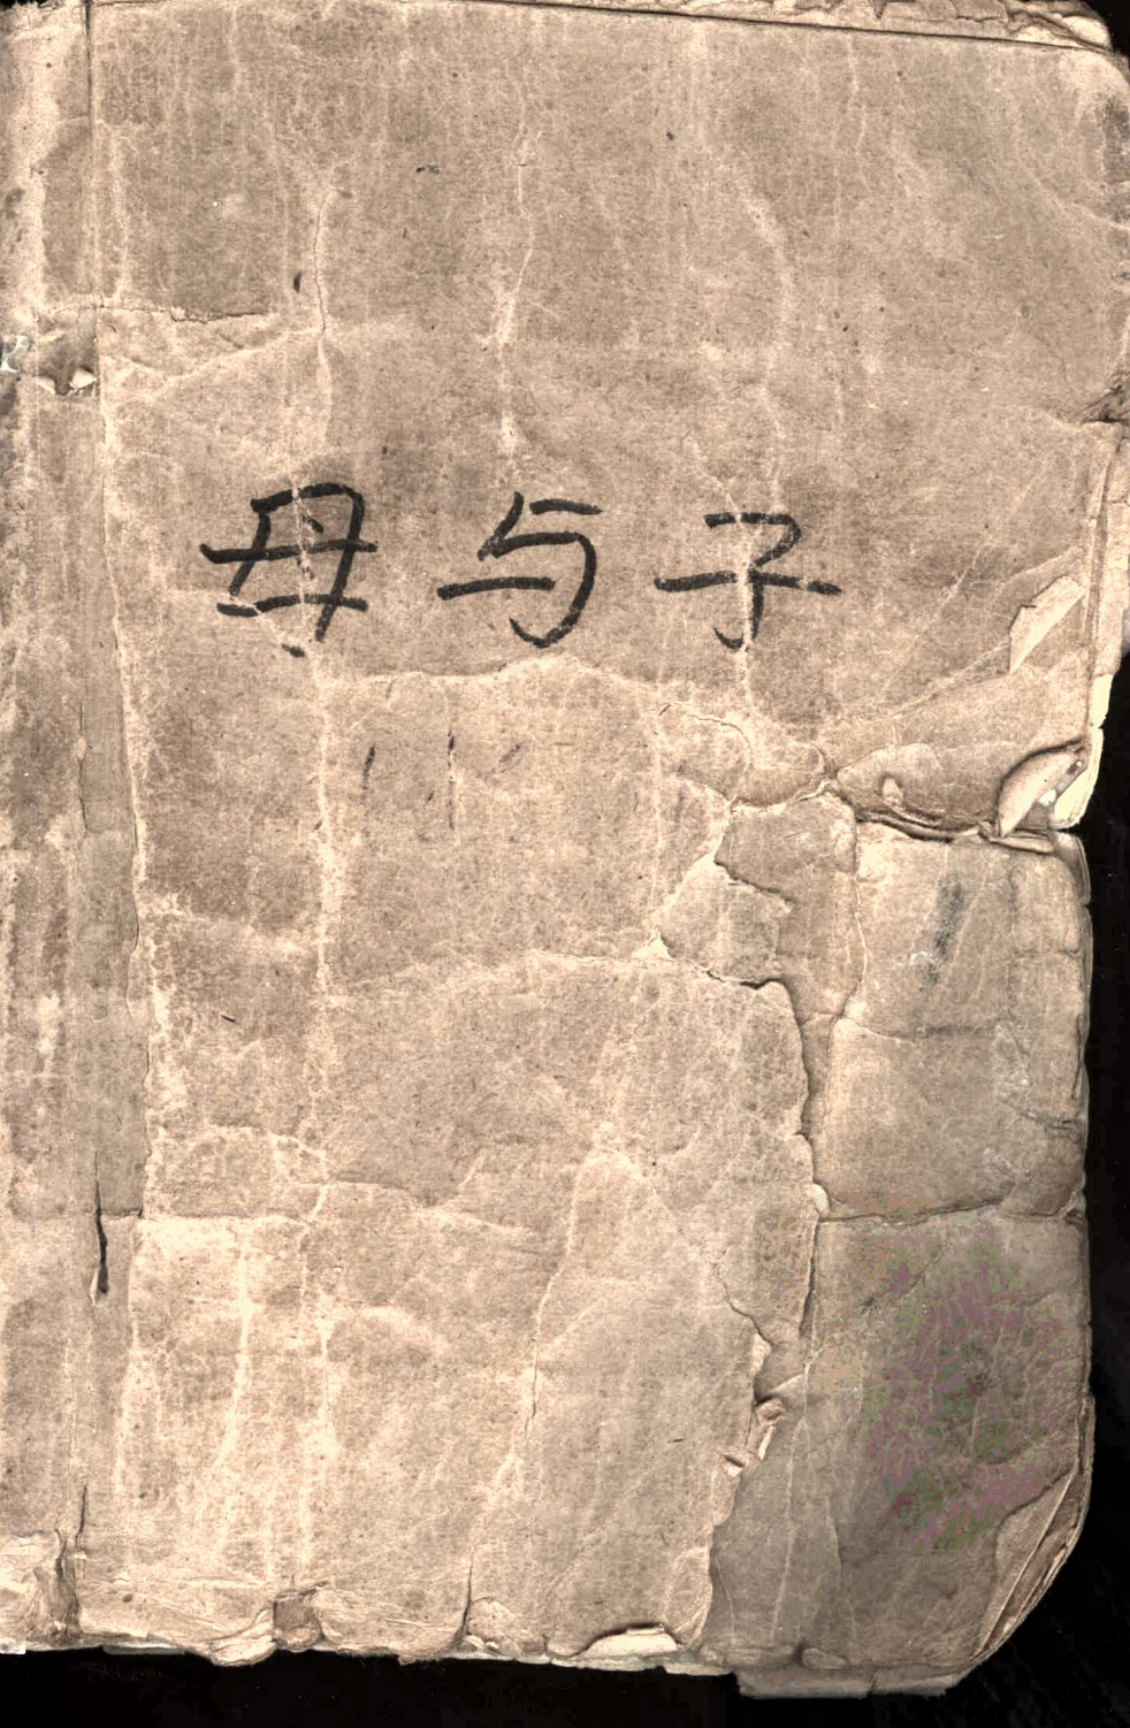 母与子